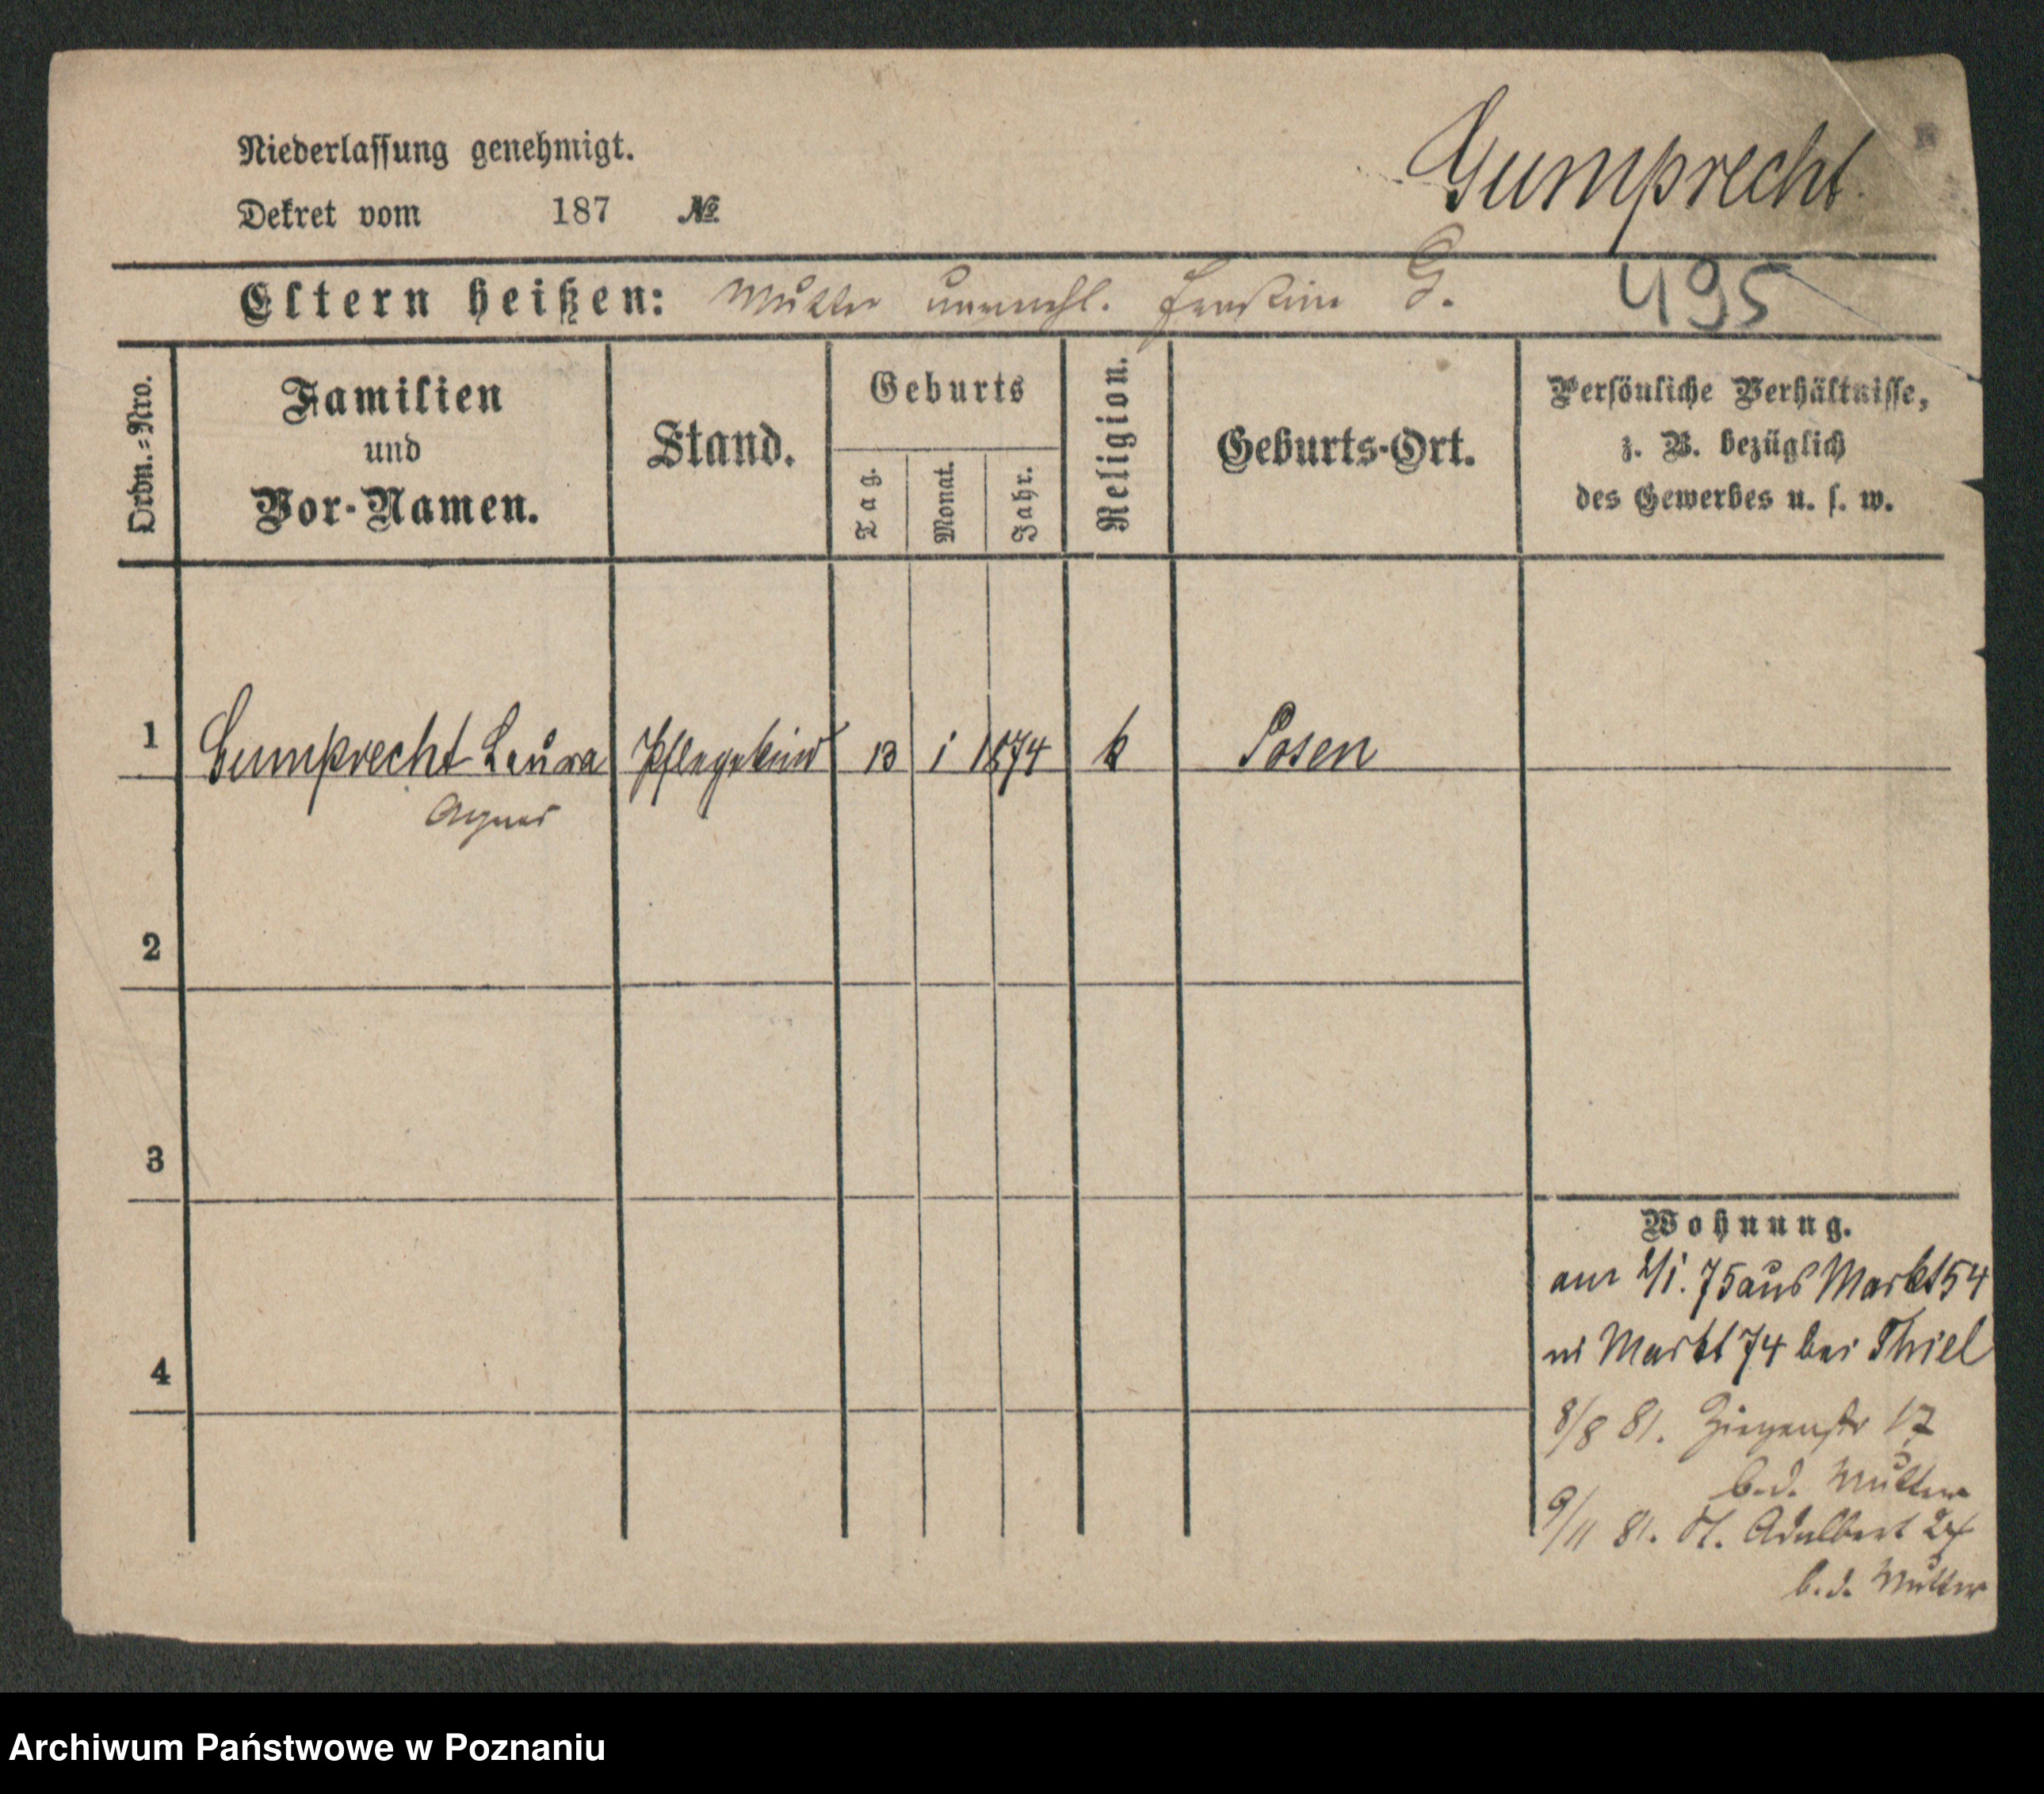 Niederlassung genehmigt.
Gumprecht.
Dekret vom 187 №
Eltern heißen: Mutter unverehl. G.
495
Ordn.=Nro.
Familien
und
Vor-Namen.
Stand.
Geburts
Tag.
Monat.
Jahr.
Religion.
Geburts-Ort.
Persönliche Verhältnisse,
z. B. bezüglich
des Gewerbes u. s. w.
1 Gumprecht Laura Pflegekind 13 1 1874 k Posen
Agnes
2
3
4
Wohnung.
am 2/1. 75 aus Markt 54
in Markt 74 bei Thiel
8/8 81. Ziegenstr 17
b. d. Mutter
9/11 81. St. Adalbert 24
b. d. Mutter
Archiwum Państwowe w Poznaniu